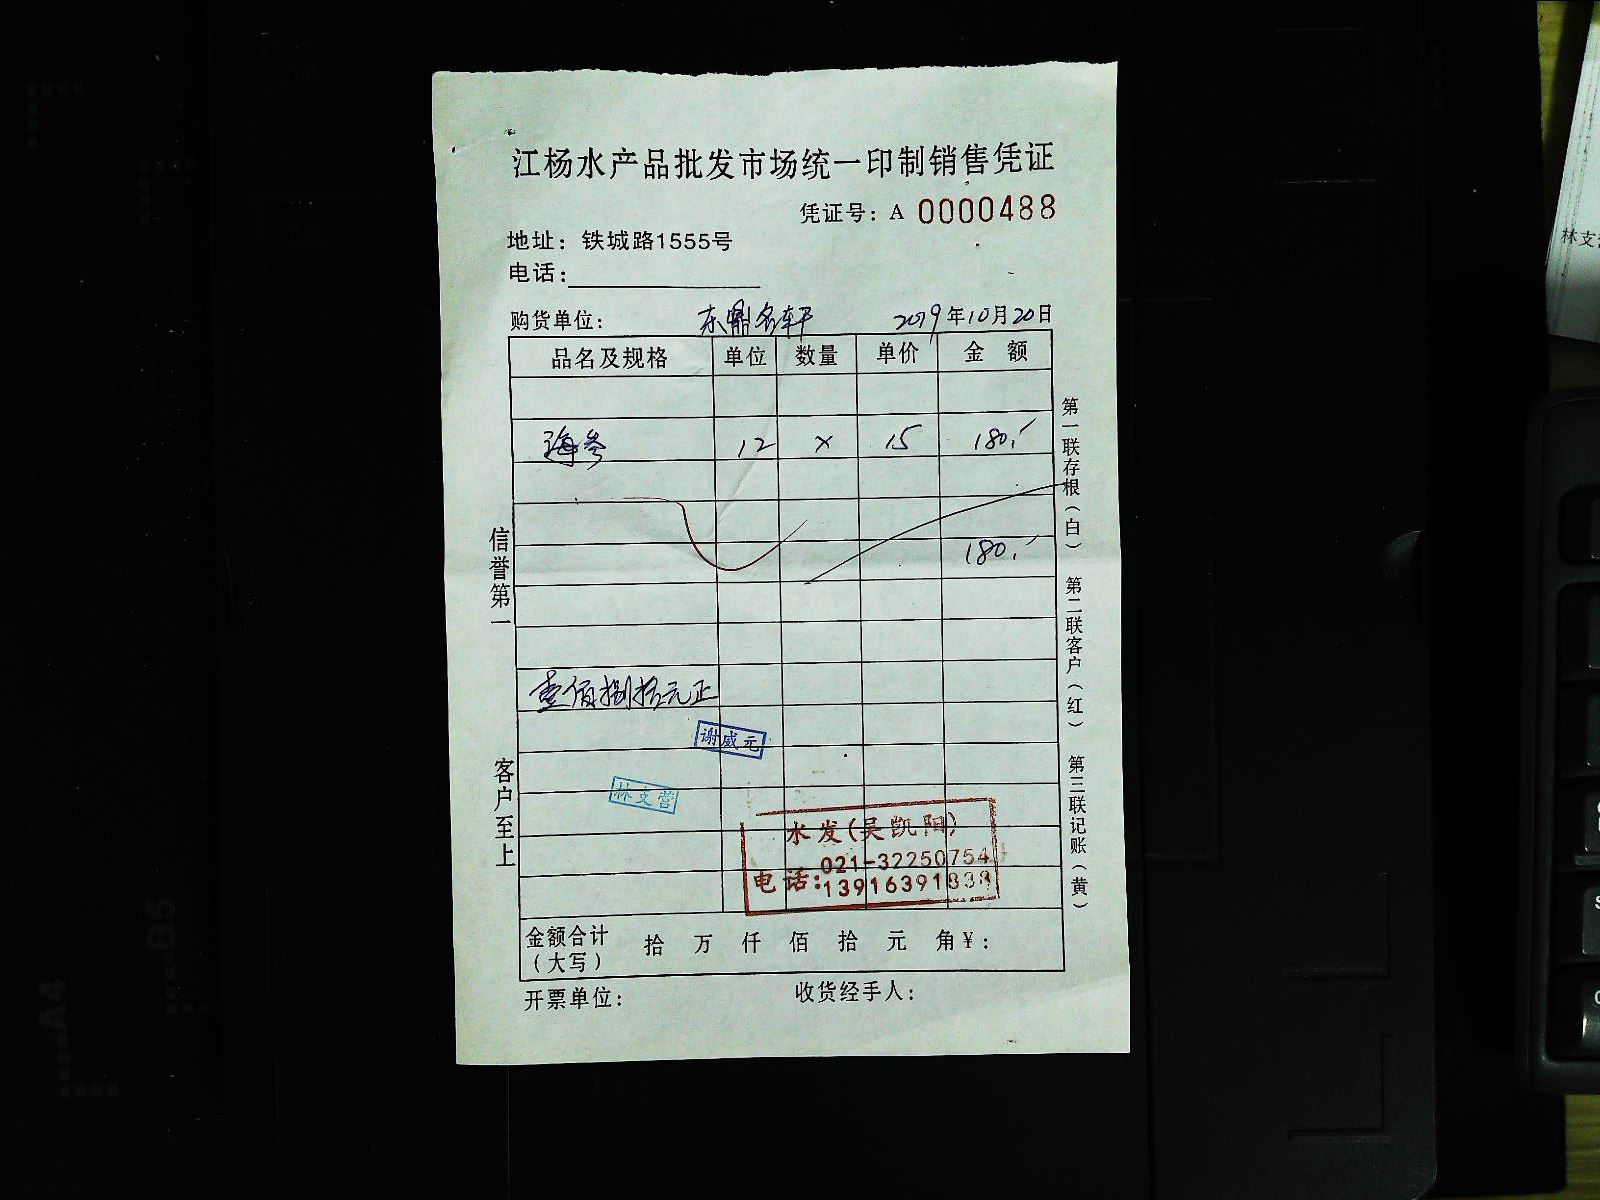 江杨水产品批发市场统一印制销售凭证
凭证号：A 0000488
地址：铁城路1555号
电话：
购货单位：东鼎名轩 2019年10月20日
品名及规格 单位 数量 单价 金 额
海参 12 × 15 180.
180.
壹佰捌拾元正
谢威元
林支营
水发(吴凯阳)
021-32250754
电话:13916391838
金额合计（大写） 拾 万 仟 佰 拾 元 角 ¥：
开票单位： 收货经手人：
信誉第一
客户至上
第一联存根（白）
第二联客户（红）
第三联记账（黄）
林支
A4
B5